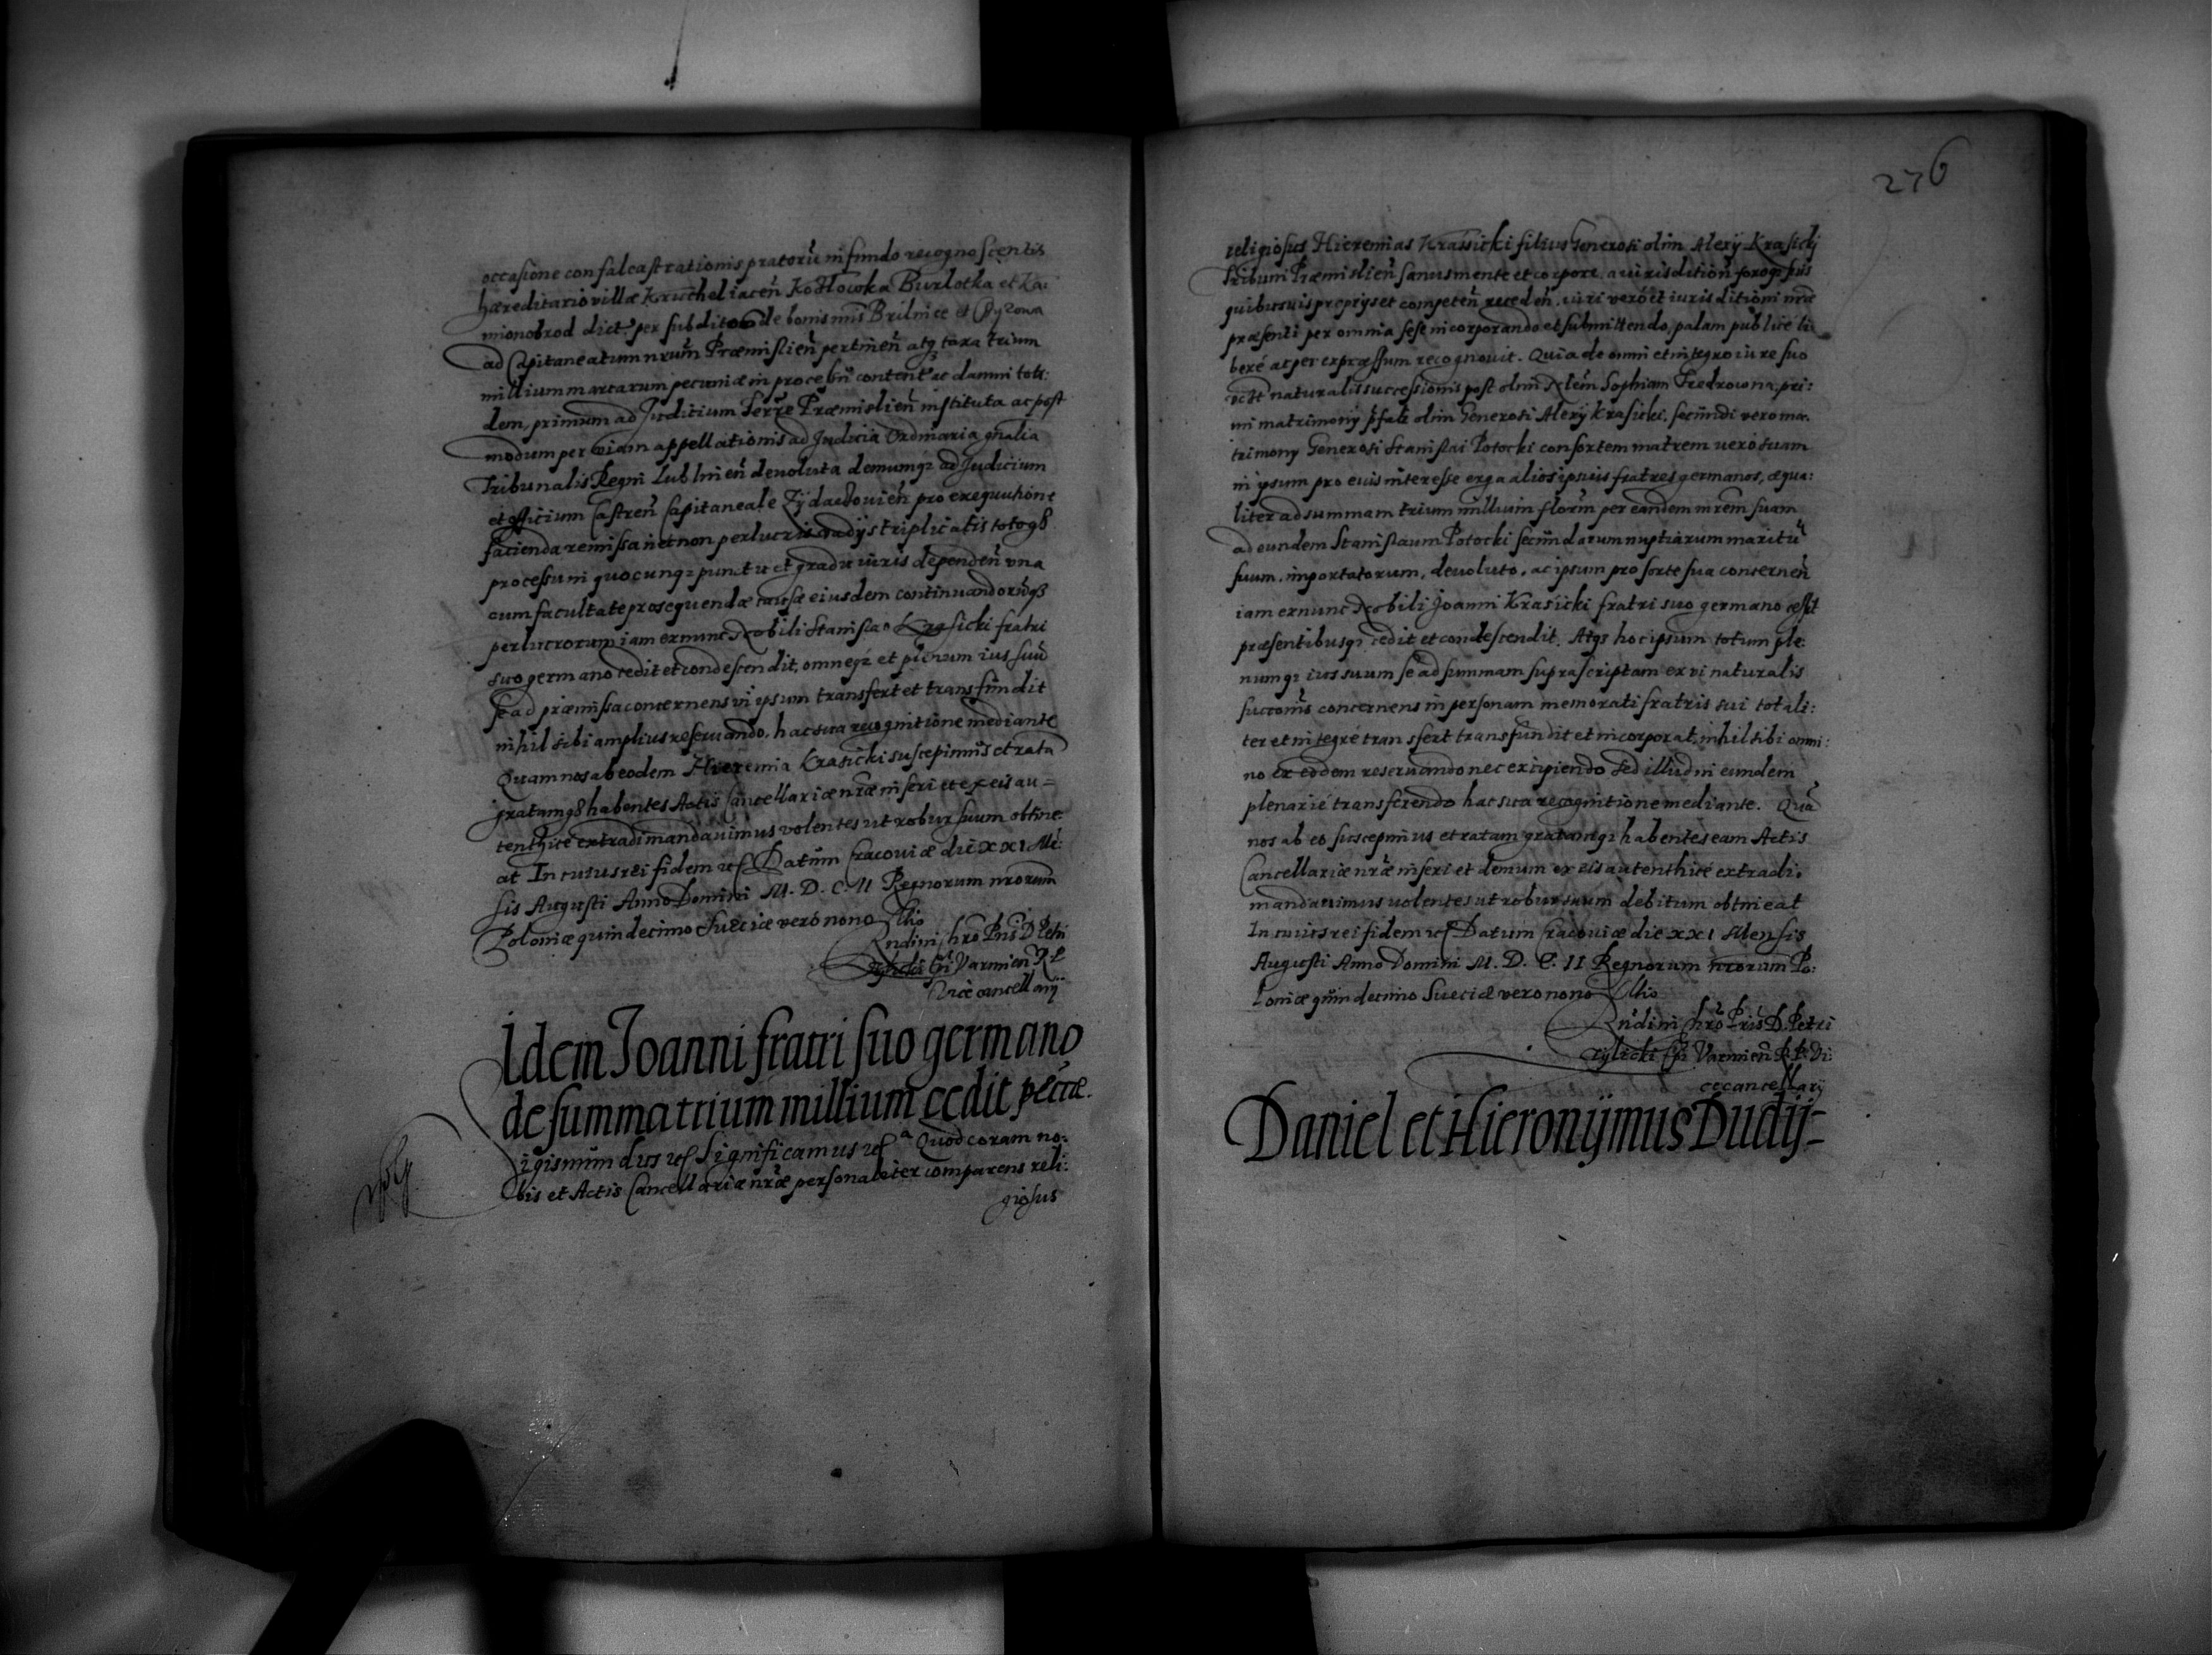 occasione confalcastrationis pratorũ in fundo recognoscentis
hæreditario villæ Kruchel iaceñ Kotłowka Burlotka et Ka:
mionobrod dict. per subditos de bonis nris Brilnice et
ad Capitaneatum nrum̃ Præmislieñ pertineñ atqз taxa trium
millium marcarum pecuniæ in processu content. ac damni toti:
dem, primum ad Juditium Terræ Præmislieñ instituta ac post
modum per viam appellationis ad Judicia Ordinaria gñalia
Tribunalis Regni Lublineñ devoluta demumqз ad Judicium
et Officium Castreñ Capitaneale Zÿdaczovieñ pro exequutione
facienda remissa necnon perlucris vadÿs triplicatis totoqз
processu in quocunqз punctu et gradu iuris dependeñ una
cum facultate prosequendæ causæ eiusdem continuandorũqз
perlucrorum iam exnunc Nobili Stanislao Krasicki fratri
suo germano cedit et condescendit, omneqз et plenum ius suũ
se ad præmissa concernens in ipsum transfert et transfundit
nihil sibi amplius reservando, hac sua recognitione mediante
Quam nos ab eodem Hieremia Krasicki suscepimus et ratã
gratamqз habentes Actis Cancellariæ nræ inseri et ex eis au=
tenthice extradi mandavimus volentes ut robur suum obtine:
at In cuius rei fidem etc Datum Cracoviæ die XXI Me:
sis Augusti Anno Domini M.D.C.II Regnorum nrorum
Poloniæ quindecimo Sueciæ veró nono Rlio
Rndini Chro Pris D Petri
Tylicki Epi Varmieñ R P
Vicecancellarÿ
Idem Joanni fratri suo germano
de summa trium millium cedit pecũæ.
Sigismundus etc Significamus etc a Quod coram no:
bis et Actis Cancellariæ nræ personaliter comparens reli:
giosus
276
religiosus Hieremias Krassicki filius Generosi olim Alexÿ Krasickj
Tribuni Præmislieñ sanus mente et corpore, a iurisditioñ foroqз suis
quibusvis proprÿs et competeñ recedeñ. iuri veró et iurisditioni nræ
præsenti per omnia sese incorporando et submittendo, palam publicé li:
beré ac per expræssum recognovit. Quia de omni et integro iure suo
naturalis successionis post olim Nlem̃ Sophiam Fredrowna, pri:
mi matrimonÿ p̃fati olim Generosi Alexÿ Krasicki, secundi vero ma:
trimony Generosi Stanislai Potocki consortem matrem veró suam
in ipsum pro eius interesse erga alios ipsius fratres germanos, æqua:
liter ad summam trium millium florm̃ per eandem mrem̃ suam
ad eundem Stanislaum Potocki secundarum nuptiarum maritũ
suum, importatorum, devoluto, ac ipsum pro sorte sua concerneñ
iam exnunc Nobili Joanni Krasicki fratri suo germano cessit
præsentibusqз cedit et condescendit. Atqз hoc ipsum totum ple:
numqз ius suum se ad summam suprascriptam ex vi naturalis
succonis̃ concernens in personam memorati fratris sui totali:
ter et integré transfert transfundit et incorporat, nihil sibi omni:
no ex eodem reservando nec excipiendo sed illud in eundem
plenarié transferendo hac sua recognitione mediante. Quã
nos ab eo suscepimus et ratam gratamqз habentes eam Actis
Cancellariæ nræ inseri et demum ex eis autenthicé extradi
mandavimus volentes ut robur suum debitum obtineat
In cuius rei fidem etc Datum Cracoviæ die XXI Mensis
Augusti Anno Domini M.D.C.II Regnorum nrorum Po:
loniæ quindecimo Sueciæ vero nono Rlio
Rndini Chro Pris D. Petri
Tylicki Epi Varmieñ R P. Vi:
cecancellarÿ
Daniel et Hieronÿmus Dudÿ-